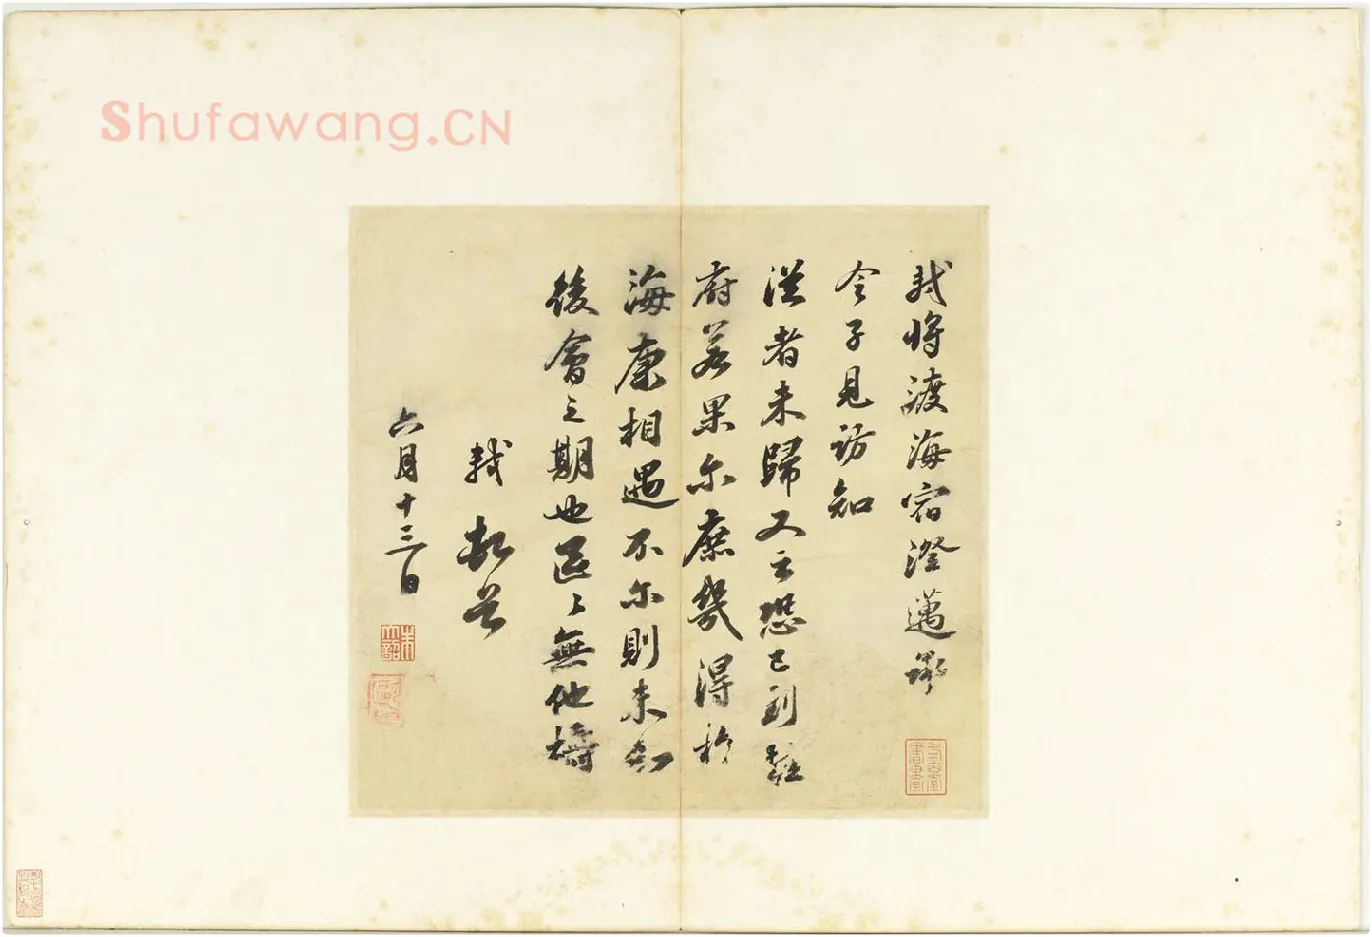 Shufawang.CN
軾將渡海宿澄邁承
令子見訪知
從者未歸又云恐已到桂
府若果尓庶幾得於
海康相遇不尓則未知
後會之期也區〻無他禱
軾頓首
六月十三日